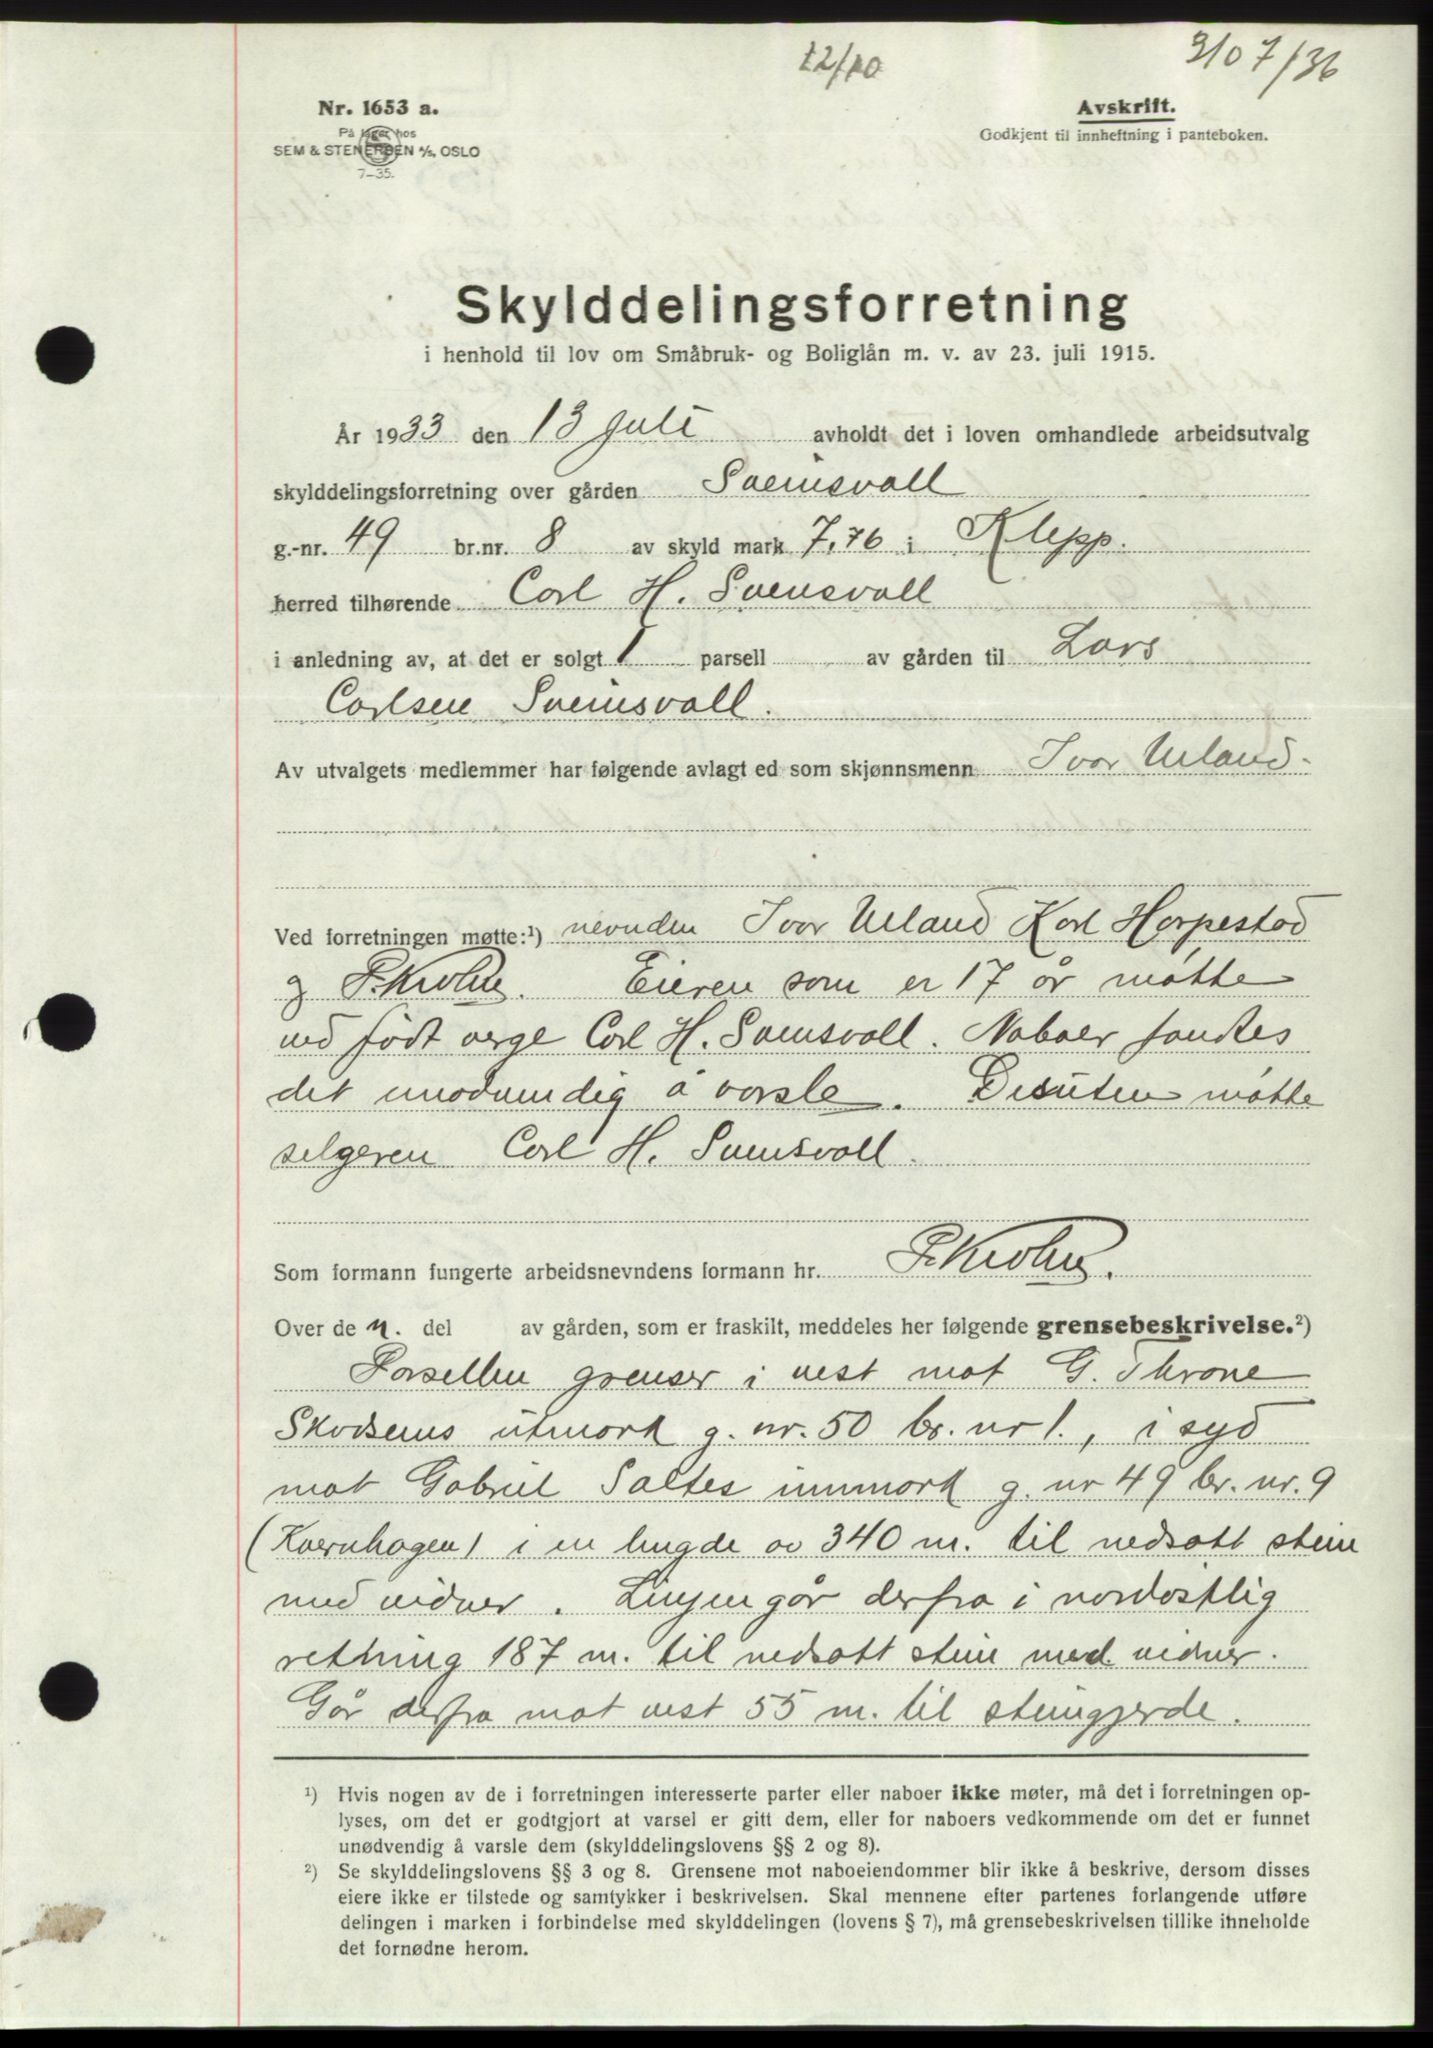 12/10
3107/36
Nr. 1653 a.
På lager hos
SEM & STENERSEN A/S, OSLO
7-35.
Avskrift.
Godkjent til innheftning i panteboken.
Skylddelingsforretning
i henhold til lov om Småbruk- og Boliglån m. v. av 23. juli 1915.
År 1933 den 13 juli avholdt det i loven omhandlede arbeidsutvalg
skylddelingsforretning over gården Sveinsvoll
g.-nr. 49 br.nr. 8 av skyld mark 7,76 i Klepp.
herred tilhørende Carl H. Sveinsvoll
i anledning av, at det er solgt 1 parsell av gården til Lars
Carlsen Sveinsvoll.
Av utvalgets medlemmer har følgende avlagt ed som skjønnsmenn Ivar Urland.
Ved forretningen møtte:¹) nevnden Ivar Urland Karl Horpestad
og P. Krohn. Eieren som er 17 år møtte
ved født verge Carl H. Sveinsvoll. Naboer fandtes
det unødvendig å varsle. Desuten møtte
selgeren Carl H. Sveinsvoll.
Som formann fungerte arbeidsnevndens formann hr. P. Krohn.
Over de n. del av gården, som er fraskilt, meddeles her følgende grensebeskrivelse.²)
Parsellen grenser i vest mot G. Throne
utmark g. nr. 50 br. nr 1., i syd
mot Gabriel Saltes innmark g. nr 49 br. nr. 9
(Kvernhagen) i en lengde av 340 m. til nedsatt stein
med vidner. Linjen går derfra i nordøstlig
rettning 187 m. til nedsatt stein med vidner.
Går derfra mot vest 55 m. til steingjerde.
¹) Hvis nogen av de i forretningen interesserte parter eller naboer ikke møter, må det i forretningen op-
lyses, om det er godtgjort at varsel er gitt dem, eller for naboers vedkommende om det er funnet
unødvendig å varsle dem (skylddelingslovens §§ 2 og 8).
²) Se skylddelingslovens §§ 3 og 8. Grensene mot naboeiendommer blir ikke å beskrive, dersom disses
eiere ikke er tilstede og samtykker i beskrivelsen. Skal mennene efter partenes forlangende utføre
delingen i marken i forbindelse med skylddelingen (lovens § 7), må grensebeskrivelsen tillike inneholde
det fornødne herom.